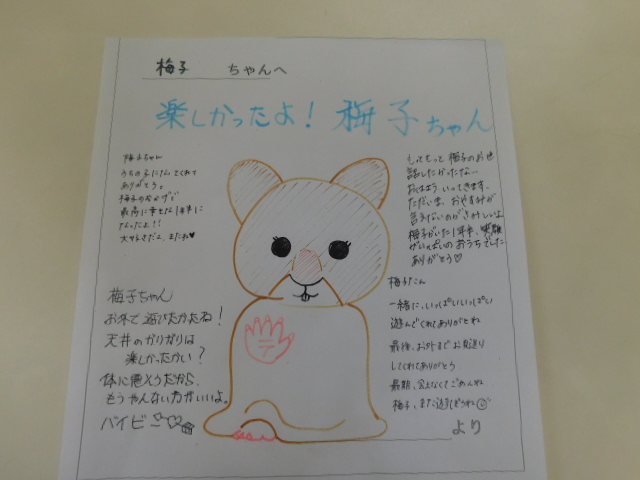 梅子 ちゃんへ
楽しかったよ! 梅子ちゃん
梅子ちゃん
うちの子になってくれて
ありがとう。
梅子のおかげで
最高に幸せな1年半に
なったよ!!
大好きだよ、またね♥
もっともっと梅子のお世
話したかったな。
おはよう いってきます、
ただいま、おやすみが
言えないのがさみしいよ
梅子がいた1年半、笑顔
がいっぱいのおうちでした
ありがとう♡
梅子ちゃん
お外で遊びたかったね!
天井のかりかりは
楽しかったかい?
体に悪そうだから、
もうやんない方がいいよ。
バイビー
梅子たん
一緒に、いっぱいいっぱい
遊んでくれてありがとね
最後、お外までお見送り
してくれてありがとう
最期、会えなくてごめんね
梅子、また遊ぼうね
テ
より